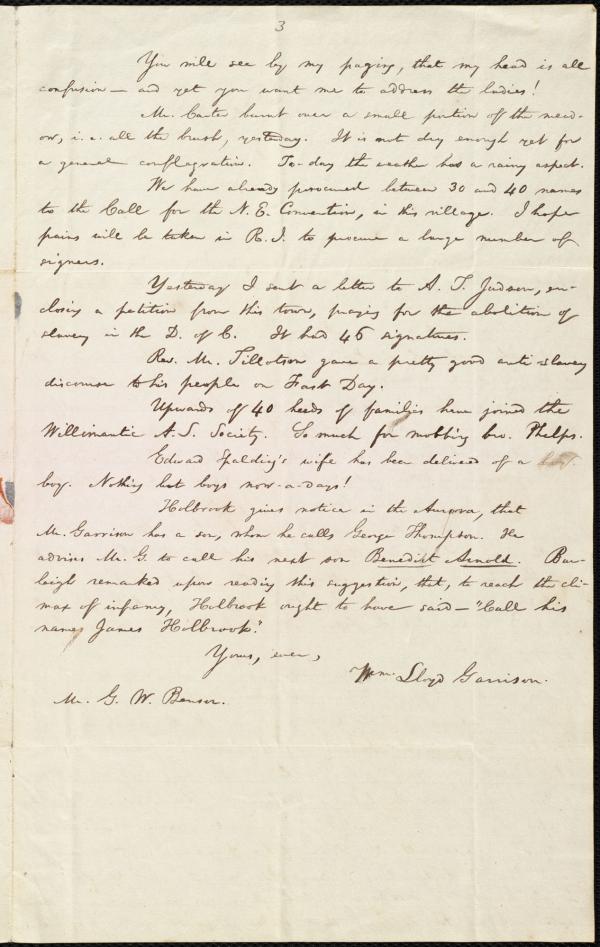 3
You will see by my paging, that my head is all
confusion — and yet you want me to address the ladies!
Mr. Carter burnt over a small portion of the mead-
ow, i. e. all the brush, yesterday. It is not dry enough yet for
a general conflagration. To-day the weather has a rainy aspect.
We have already procured between 30 and 40 names
to the Call for the N. E. Convention, in this village. I hope
pains will be taken in R. I. to procure a large number of
signers.
Yesterday I sent a letter to A. T. Judson, en-
closing a petition from this town, praying for the abolition of
slavery in the D. of C. It had 46 signatures.
Rev. Mr. Tillotson gave a pretty good anti-slavery
discourse to his people on Fast Day.
Upwards of 40 heads of families have joined the
Willimantic A. S. Society. So much for mobbing bro. Phelps.
Edward Spalding's wife has been delivered of a
boy. Nothing but boys now-a-days!
Holbrook gives notice in the Aurora, that
Mr. Garrison has a son, whom he calls George Thompson. He
advises Mr. G. to call his next son Benedict Arnold. Bur-
leigh remarked upon reading this suggestion, that, to reach the cli-
max of infamy, Holbrook ought to have said — "Call his
name James Holbrook."
Yours, ever,
Wm. Lloyd Garrison.
Mr. G. W. Benson.